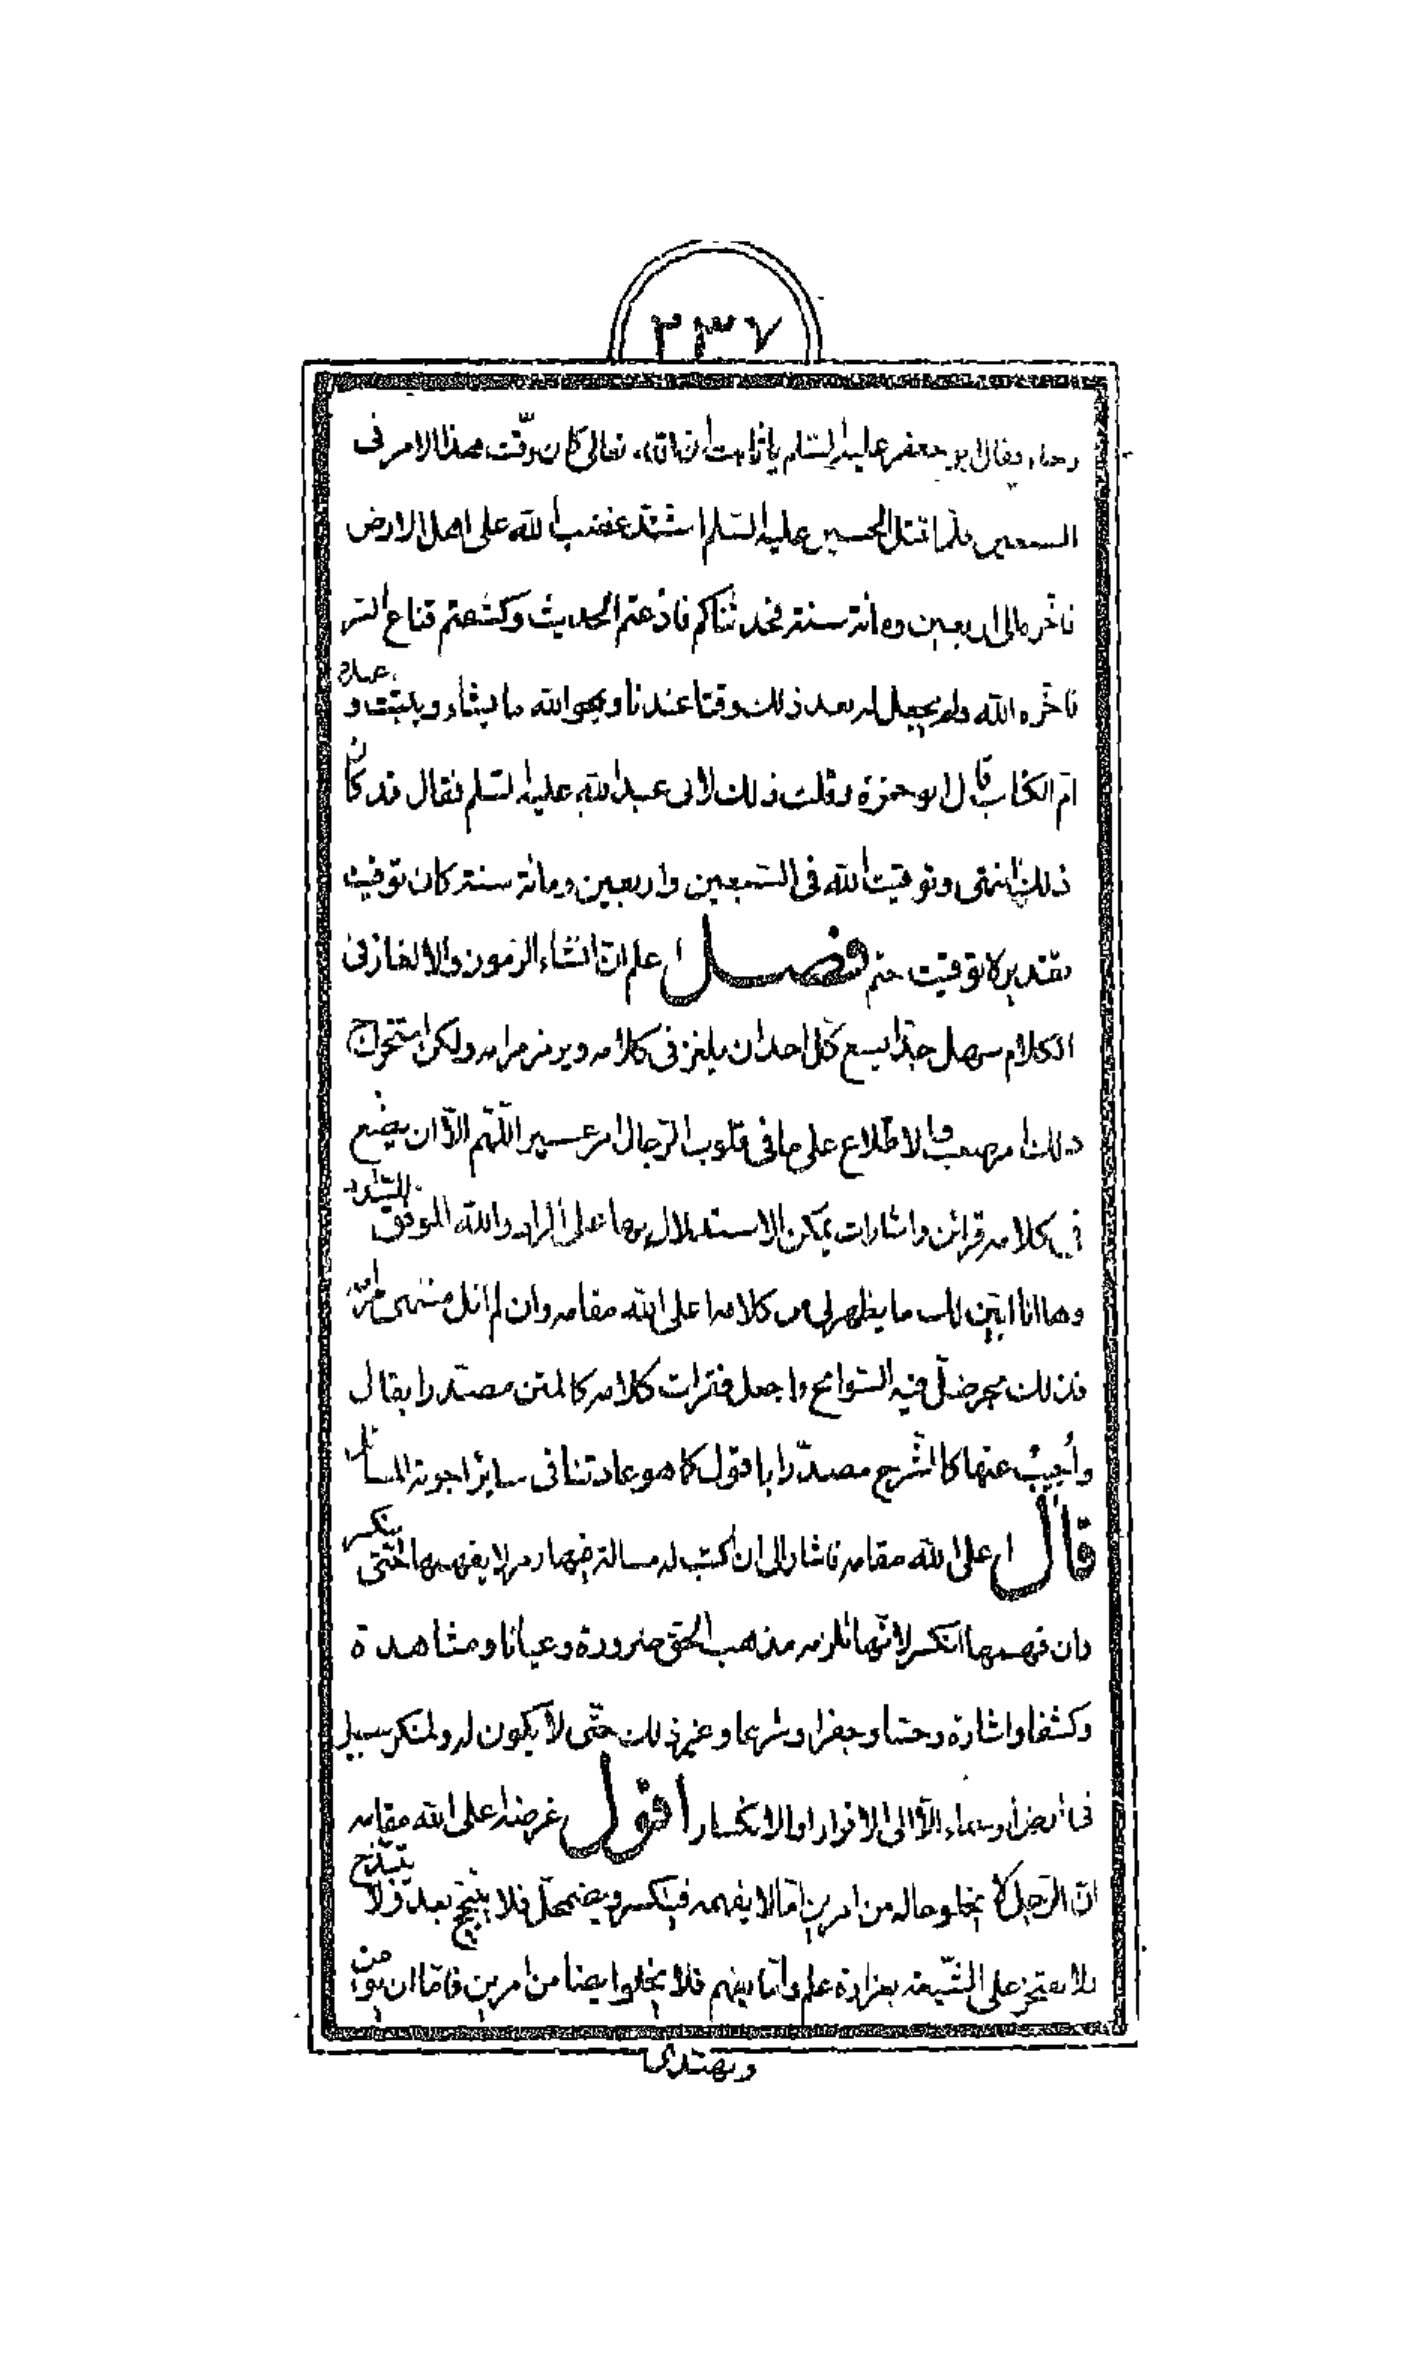 ٢٣٧
رخاء فقال ابو جعفر عليه السّلم يا ثابت ان الله تعالى كان وقّت هذا الامر فى
السبعين فلمّا قتل الحسين عليه السّلم اشتدّ غضب الله على اهل الارض
فاخّره الى اربعين ومائة سنة فحدثناكم فاذعتم الحديث وكشفتم قناع الستر
فاخّره الله ولم يجعل له بعد ذلك وقتا عندنا ويمحو الله ما يشاء ويثبت و عنده
امّ الكتاب قال ابو حمزة وقلت ذلك لابى عبد الله عليه السّلم فقال قد كان
ذلك انتهى وتوقيت الله فى السّبعين واربعين ومائة سنة كان توقيت
تقدير لا توقيت حتم فصل اعلم انّ انشاء الرموز والالغاز فى
الكلام سهل جدّا يسع كلّ احد ان يلغز فى كلامه ويرمز مرامه ولكن استخراج
ذلك امر صعب والاطّلاع على ما فى قلوب الرّجال امر عسير اللّهم الّا ان يضع
فى كلامه قرائن واشارات يمكن الاستدلال بها على المراد والله الموفق للسّداد
وها انا ابيّن لك ما يظهر لى من كلامه اعلى الله مقامه وان لم انل منتهى مرامه
فذلك مجرى فيه السّوانح واجعل فقرات كلامه كالمتن مصدّرا بقال
وأجيبُ عنها كالشّرح مصدّرا باقول كما هو عادتنا فى ساير اجوبة المسائل
قال اعلى الله مقامه فاشار الى ان اكتب له مسالة فيها رمز لا يفهمها حتّى ينكسر
وان فهمها انكسر لانّها تلزمه مذهب الحق ضرورة وعيانا ومشاهدة
وكشفا واشارة وحسّا وجفرا وشرعا وغير ذلك حتّى لا يكون له ولمنكر سبيل
فى ارض او سماء الّا الى الاقرار او الانكسار اقول غرضه اعلى الله مقامه
انّ الرّجل لا يخلو حاله من امرين امّا لا يفهمه فينكسر ويضمحلّ فلا يتبجّح بعد ولا يتبذّخ
ولا يفتخر على الشّيعة بغزارة علم وامّا يفهم فلا يخلوا ايضا من امرين فامّا ان يؤمن
ويهتدى